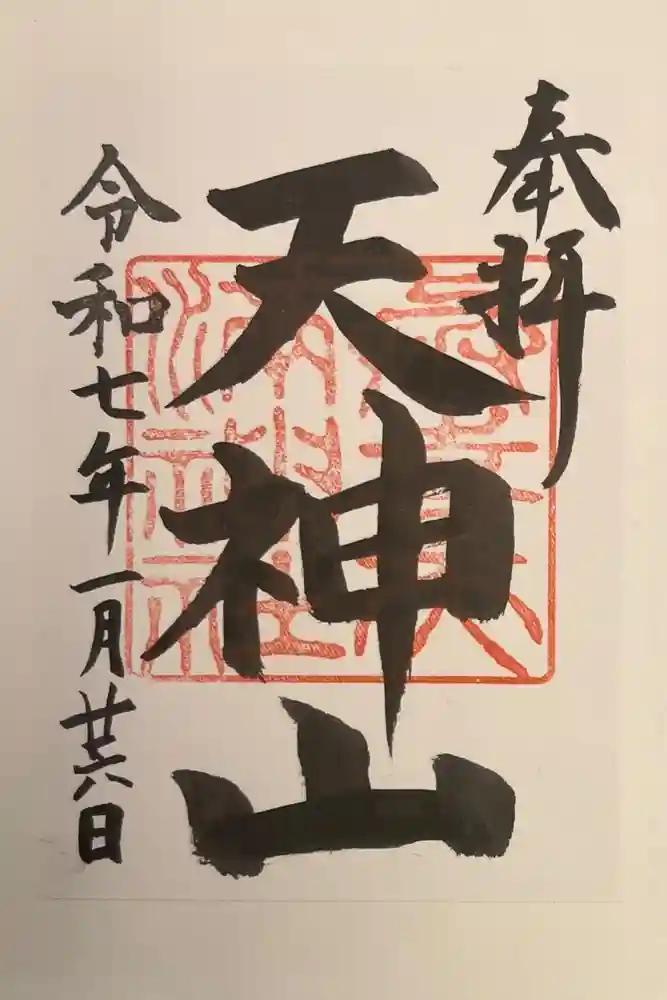 奉拝
天神山
令和七年一月廿六日